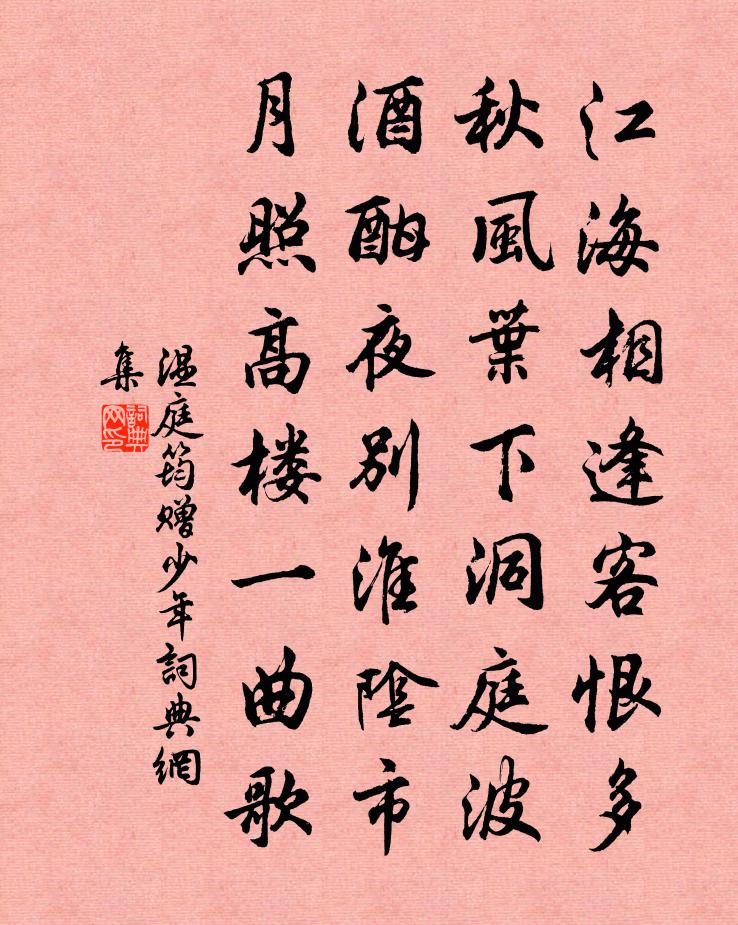 江海相逢客恨多
秋風葉下洞庭波
酒酣夜別淮陰市
月照高楼一曲歌
温庭筠贈少年詞典網
集
詞典网印